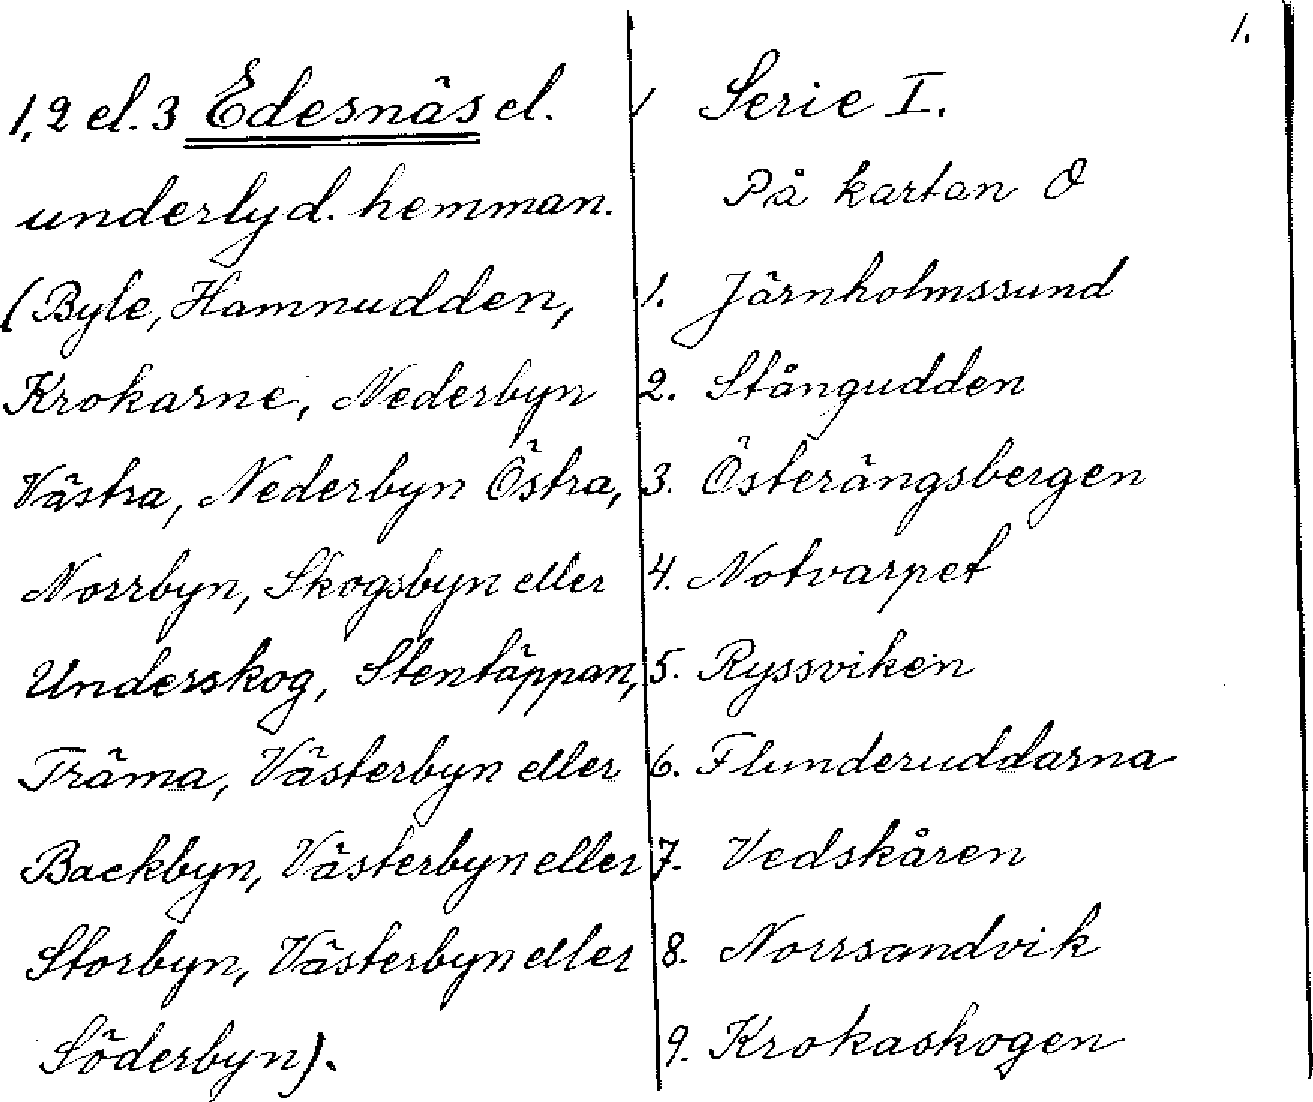 1.
1, 2 el. 3 Edesnäs el.
underlyd. hemman.
(Byle, Hamnudden,
Krokarne, Nederbyn
Västra, Nederbyn Östra,
Norrbyn, Skogsbyn eller
Underskog, Stentäppan,
Träma, Västerbyn eller
Backbyn, Västerbyn eller
Storbyn, Västerbyn eller
Söderbyn).
1 Serie I.
På kartan O
1. Järnholmssund
2. Stångudden
3. Österängsbergen
4. Notvarpet
5. Ryssviken
6. Flunderuddarna
7. Vedskåren
8. Norrsandvik
9. Krokaskogen